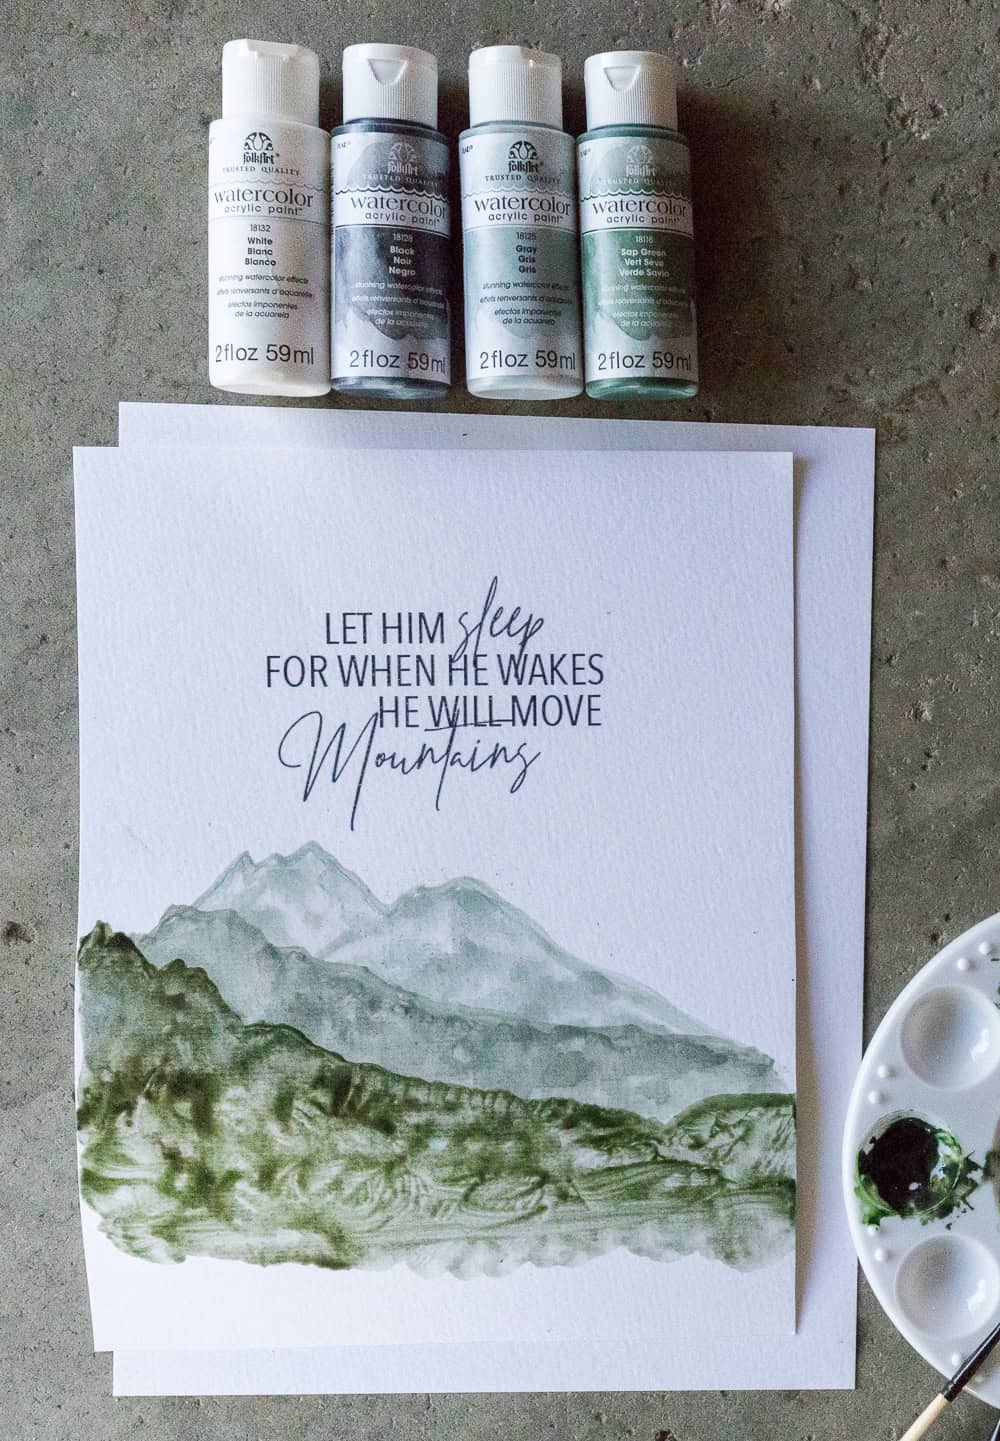 folkArt®
TRUSTED QUALITY
watercolor
acrylic paint™
18132
White
Blanc
Blanco
stunning watercolor effects
effets renversants d'aquarelle
efectos imponentes
de la acuarela
2 fl oz 59 ml
folkArt®
TRUSTED QUALITY
watercolor
acrylic paint™
18128
Black
Noir
Negro
stunning watercolor effects
effets renversants d'aquarelle
efectos imponentes
de la acuarela
2 fl oz 59 ml
folkArt®
TRUSTED QUALITY
watercolor
acrylic paint™
18125
Gray
Gris
Gris
stunning watercolor effects
effets renversants d'aquarelle
efectos imponentes
de la acuarela
2 fl oz 59 ml
folkArt®
TRUSTED QUALITY
watercolor
acrylic paint™
18118
Sap Green
Vert Sève
Verde Savia
stunning watercolor effects
effets renversants d'aquarelle
efectos imponentes
de la acuarela
2 fl oz 59 ml
LET HIM sleep
FOR WHEN HE WAKES
HE WILL MOVE
Mountains